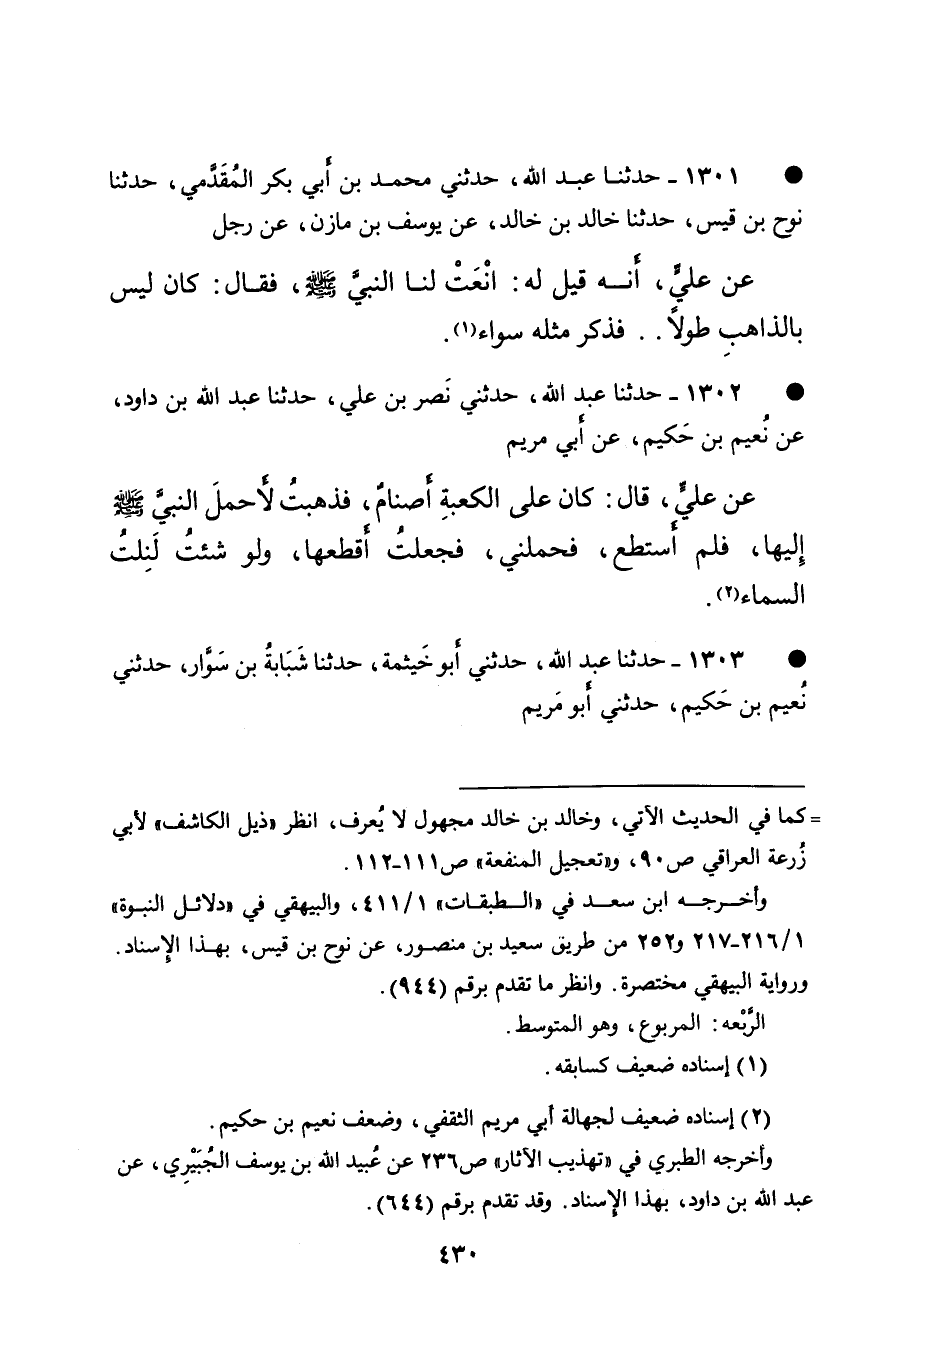 ● ١٣٠١ - حدثنا عبد الله، حدثني محمد بن أَبي بكر المُقَدَّمي، حدثنا
نوح بن قيس، حدثنا خالد بن خالد، عن يوسف بن مازن، عن رجل
عن عليٍّ، أَنه قيل له: انْعَتْ لنا النبيَّ ﷺ، فقال: كان ليس
بالذاهبِ طولاً . . فذكر مثله سواء(١).
● ١٣٠٢ - حدثنا عبد الله، حدثني نَصر بن علي، حدثنا عبد الله بن داود،
عن نُعيم بن حَكيم، عن أَبي مريم
عن عليٍّ، قال: كان على الكعبةِ أَصنامٌ، فذهبتُ لأَحملَ النبيَّ ﷺ
إليها، فلم أَستطع، فحملني، فجعلتُ أَقطعها، ولو شئتُ لَنِلتُ
السماء(٢).
● ١٣٠٣ - حدثنا عبد الله، حدثني أَبو خَيثمة، حدثنا شَبَابةُ بن سَوَّار، حدثني
نُعيم بن حَكيم، حدثني أَبو مَريم
= كما في الحديث الآتي، وخالد بن خالد مجهول لا يُعرف، انظر «ذيل الكاشف» لأبي
زُرعة العراقي ص٩٠، و«تعجيل المنفعة» ص١١١-١١٢.
وأخرجه ابن سعد في «الطبقات» ٤١١/١، والبيهقي في «دلائل النبوة»
٢١٦/١-٢١٧ و٢٥٢ من طريق سعيد بن منصور، عن نوح بن قيس، بهذا الإسناد.
ورواية البيهقي مختصرة. وانظر ما تقدم برقم (٩٤٤).
الرَّبْعه: المربوع، وهو المتوسط.
(١) إسناده ضعيف كسابقه.
(٢) إسناده ضعيف لجهالة أبي مريم الثقفي، وضعف نعيم بن حكيم.
وأخرجه الطبري في «تهذيب الآثار» ص٢٣٦ عن عُبيد الله بن يوسف الجُبَيْرِي، عن
عبد الله بن داود، بهذا الإسناد. وقد تقدم برقم (٦٤٤).
٤٣٠